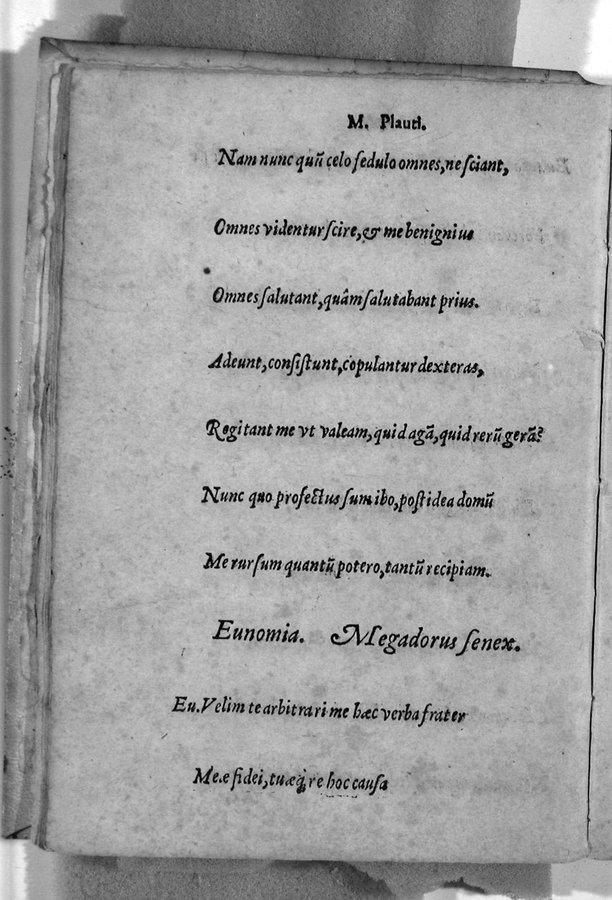 M. Plauti.
Nam nunc quũ celo sedulo omnes, ne sciant,
Omnes videntur scire, & me benignius
Omnes salutant, quâm salutabant prius.
Adeunt, consistunt, copulantur dexteras,
Rogitant me vt valeam, quid agã, quid rerũ gerã?
Nunc quo profectus sum ibo, postidea domũ
Me rursum quantũ potero, tantũ recipiam.
Eunomia. Megadorus senex.
Eu. Velim te arbitrari me hæc verba frater
Meæ fidei, tuæq; re hoc causa